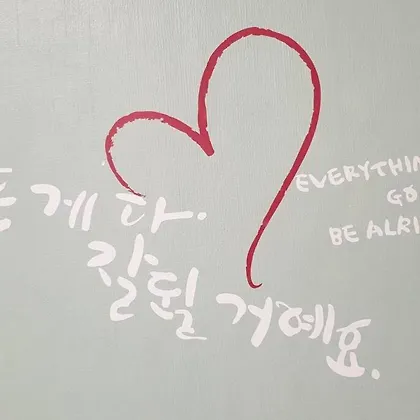 게 다.
잘될 거예요.
EVERYTHIN
GO
BE ALRI